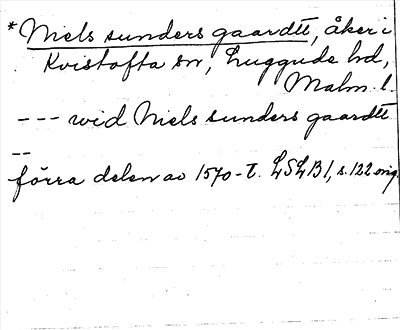 *Niels sunders gaardtt, åker i
Kvistofta sn, Luggude hd,
Malm. l.
--- wid Niels sunders gaardtt
--
förra delen av 1570-t. LSLB1, s. 122 orig.